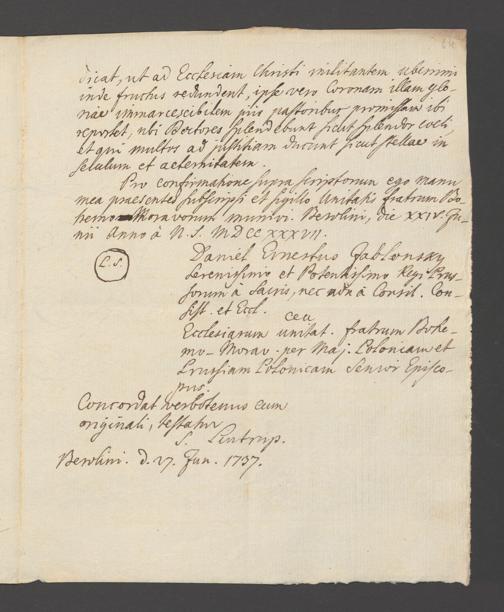 dicat, ut ad Ecclesiam Christi militantem uberrimi
inde fructus redundent, ipse vero Coronam illam glo-
riae immarcescibilem piis pastoribus promissam ibi
reportet, ubi Doctores splendebunt sicut splendor coeli,
et qui multos ad justitiam ducunt sicut stellae in
seculum et aeternitatem.
Pro confirmatione supra scriptorum ego manu
mea praesentes subscripsi et sigillo Unitatis fratrum Bo-
hemo-Moravorum munivi. Berolini, die XXIV. Ju-
nii Anno à N. S. MDCCXXXVII.
L.S.
Daniel Ernestus Jablonsky
Serenissimo et Potentissimo Regi Prus-
sorum à Sacris, nec non à Consil. Con-
sist. et Eccl.
ceu
Ecclesiarum unitat. fratrum Bohe-
mo-Morav. per Maj. Poloniam et
Prussiam Polonicam Senior Episco-
pus.
Concordat verbotenus cum
originali, testatur
S. Lintrup.
Berolini. d. 27. Jun. 1737.